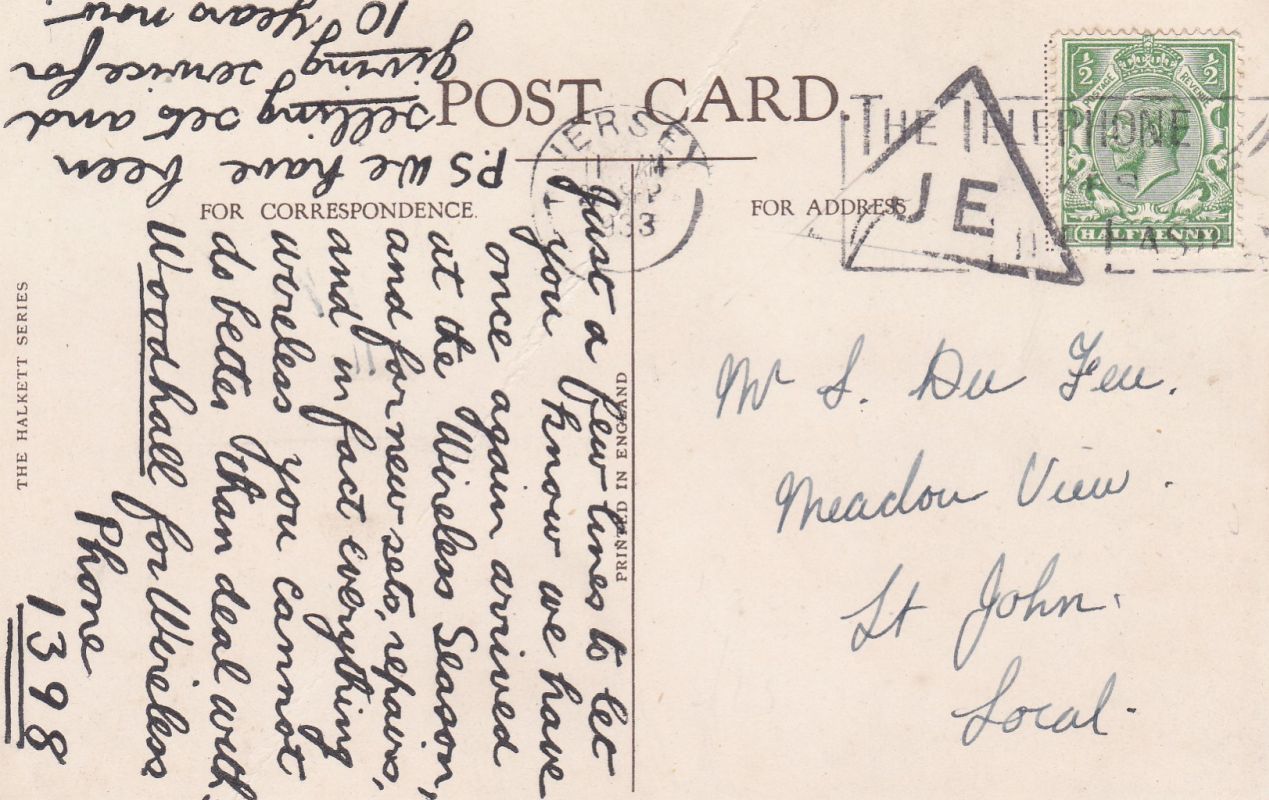 POST CARD.
FOR CORRESPONDENCE.
FOR ADDRESS
THE HALKETT SERIES
PRINTED IN ENGLAND
Just a few lines to let
you know we have
once again arrived
at the Wireless Season,
and for new sets, repairs,
and in fact everything
wireless you cannot
do better than deal with
Woodhall for Wireless
Phone
1398
P.S. We have been
selling sets and
giving service for
10 years now.
JERSEY
11 AM
1933
THE TELEPHONE
JE
½ ½
POSTAGE REVENUE
HALFPENNY
Mr S. Du Feu.
Meadow View.
St John.
Local.